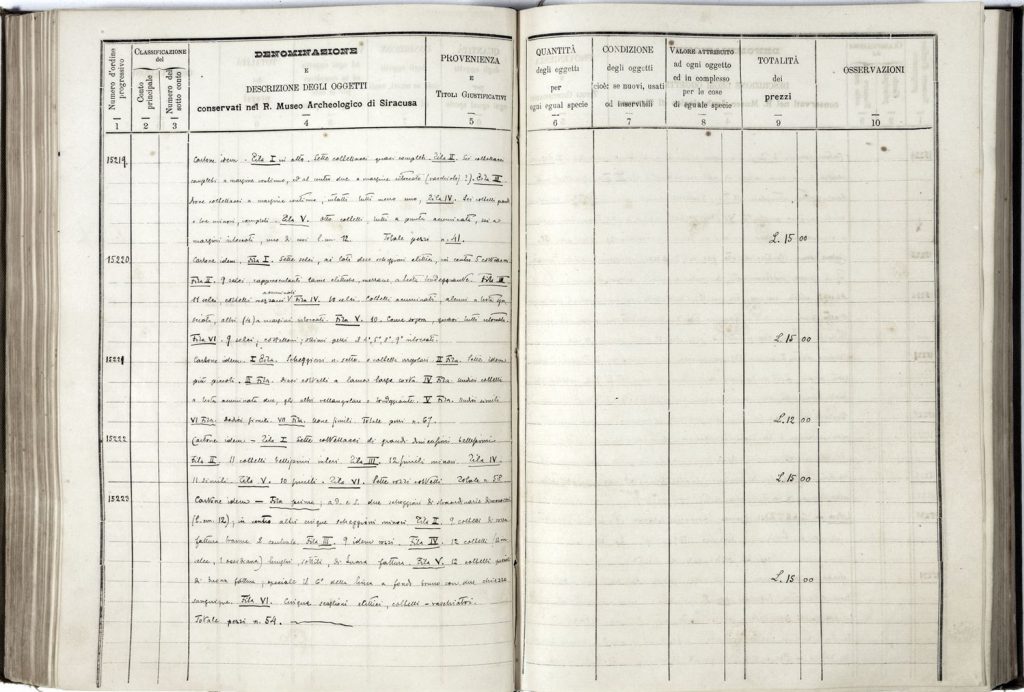 Numero d'ordine progressivo
CLASSIFICAZIONE
del
Conto principale
Numero del sotto conto
DENOMINAZIONE
E
DESCRIZIONE DEGLI OGGETTI
conservati nel R. Museo Archeologico di Siracusa
PROVENIENZA
E
TITOLI GIUSTIFICATIVI
QUANTITÀ
degli oggetti
per
ogni egual specie
CONDIZIONE
degli oggetti
cioè: se nuovi, usati
od inservibili
VALORE ATTRIBUITO
ad ogni oggetto
od in complesso
per le cose
di eguale specie
TOTALITÀ
dei
prezzi
OSSERVAZIONI
1 2 3 4 5 6 7 8 9 10
15219 Cartone idem. Fila I in alto. Sette coltellacci quasi completi. Fila II. Sei coltellacci
completi a margine continuo, ed al centro due a margine ritoccato (raschiatoi?). Fila III
Nove coltellacci a margine continuo, intatti tutti meno uno, Fila IV. Sei coltelli grandi
e tre minori, completi. Fila V. Otto coltelli, tutti a punta acuminata,
margini ritoccati, uno di essi l. m. 12. Totale pezzi n. 41. L. 15 00
15220 Cartone idem. Fila I. Sette selci, ai lati due scheggioni elittici, nel centro 5 coltellacci
Fila II. 9 selci rappresentanti lame elittiche, a testa tondeggiante. Fila III
11 selci, coltelli mezzani acuminati Fila IV. 10 selci. Coltelli acuminati, alcuni a testa
altri (4) a margini ritoccati. Fila V. 10. Come sopra, quasi tutti ritoccati.
Fila VI. 9 selci; coltelloni; ottimi pezzi il 1°, 5°, 8°, 9° ritoccati. L. 15 00
15221 Cartone idem. I Fila. Scheggioni n. sette o coltelli irregolari II Fila. Sette idem
più piccoli. III Fila. Dieci coltelli a lama larga corta IV Fila. Undici coltelli
a testa acuminata due, gli altri rettangolare o tondeggiante. V Fila. Undici simili
VI Fila. Dodici simili. VII Fila. Nove simili. Totale pezzi n. 67. L. 12 00
15222 Cartone idem – Fila I Sette coltellacci di grandi dimensioni bellissimi
Fila II. 11 coltelli bellissimi interi. Fila III. 12 simili minori. Fila IV.
11 simili. Fila V. 10 simili. Fila VI. Sette rozzi coltelli Totale n. 58 L. 15 00
15223 Cartone idem – Fila prima; a D. e S. due scheggioni di straordinarie dimensioni
(l. m. 12); in centro altri cinque scheggioni minori Fila II. 9 coltelli di rozza
fattura tranne il centrale. Fila III. 9 idem rozzi. Fila IV. 12 coltelli (11
selce, 1 ossidiana) lunghi, sottili, di buona fattura. Fila V. 12 coltelli
di buona fattura, speciale il 6° della linea a fondo bruno con due chiazze
sanguigne. Fila VI. Cinque scaglioni elittici, coltelli-raschiatoi.
Totale pezzi n. 54. L. 15 00